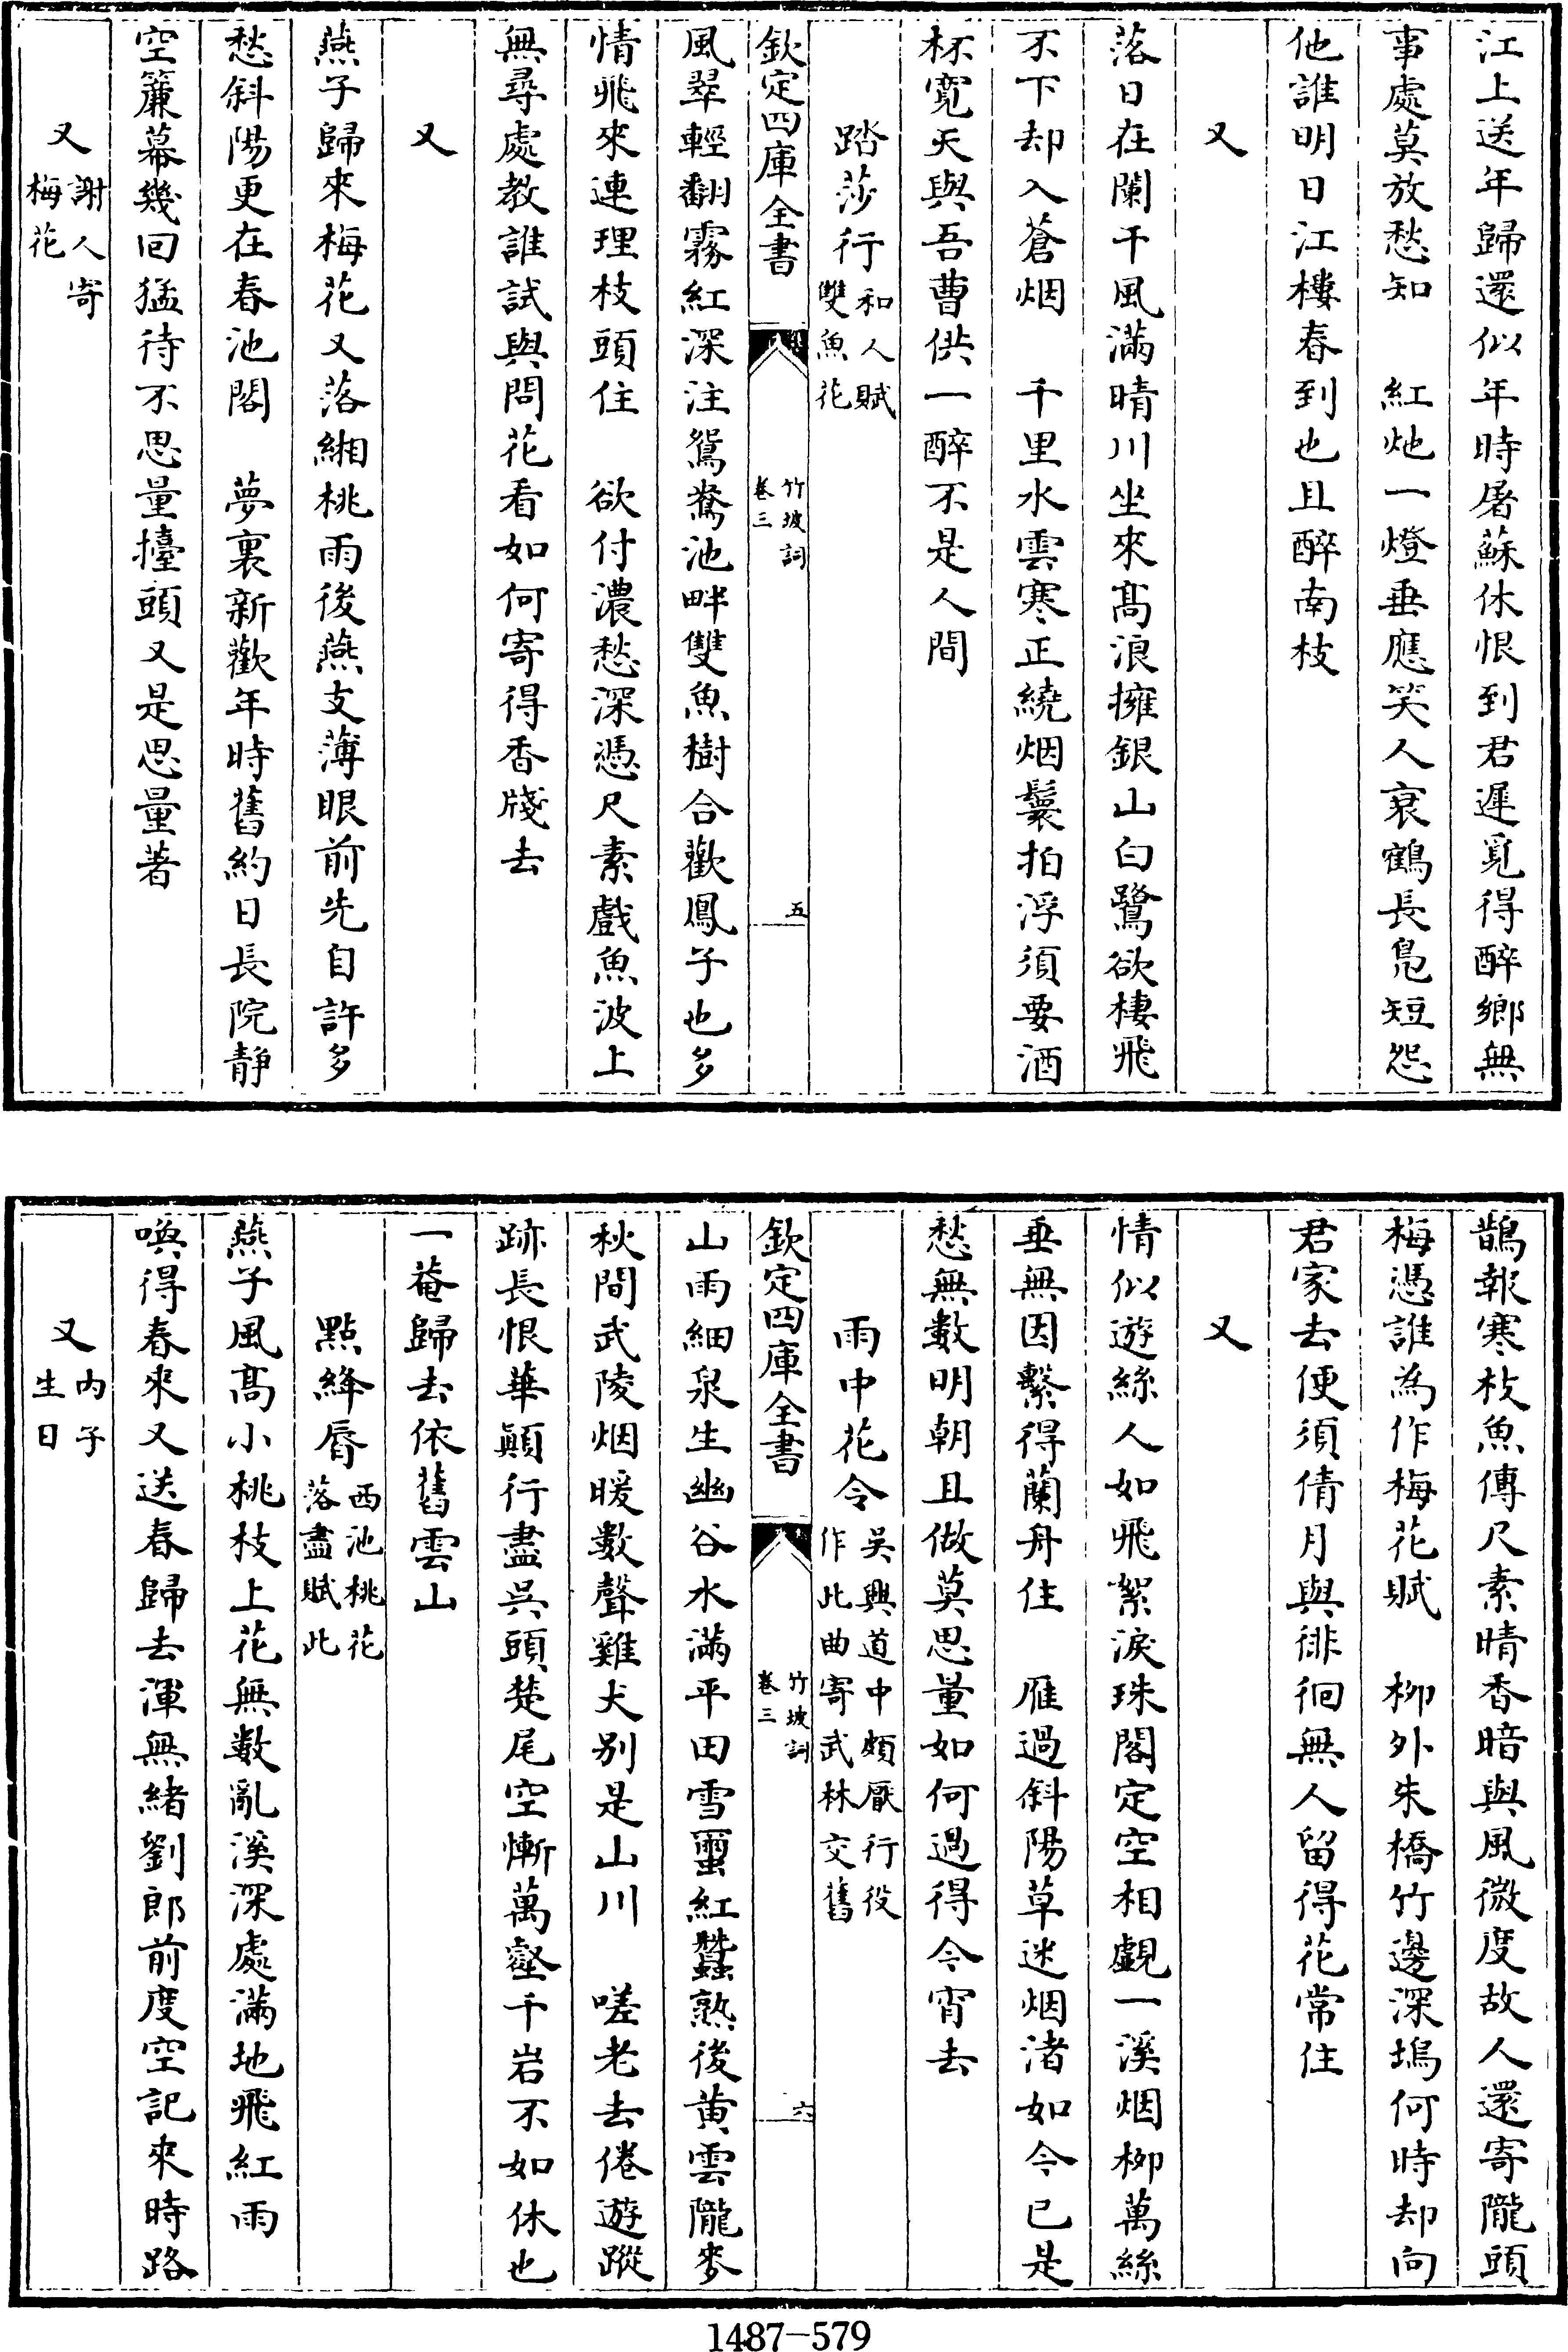 江上送年歸還似年時屠蘇休恨到君遲覓得醉鄉無
事處莫放愁知　紅灺一燈垂應笑人衰鶴長鳧短怨
他誰明日江樓春到也且醉南枝
又
落日在闌干風滿晴川坐來髙浪擁銀山白鷺欲棲飛
不下却入蒼烟　千里水雲寒正繞烟鬟拍浮須要酒
杯寛天與吾曹供一醉不是人間
踏莎行和人賦雙魚花
欽定四庫全書
竹坡詞
卷三
五
風翠輕翻霧紅深注鴛鴦池畔雙魚樹合歡鳳子也多
情飛來連理枝頭住　欲付濃愁深憑尺素戲魚波上
無尋處教誰試與問花看如何寄得香牋去
又
燕子歸來梅花又落緗桃雨後燕支薄眼前先自許多
愁斜陽更在春池閣　夢裏新歡年時舊約日長院靜
空簾幕幾回猛待不思量擡頭又是思量著
又謝人寄梅花
鵲報寒枝魚傳尺素晴香暗與風微度故人還寄隴頭
梅憑誰為作梅花賦　栁外朱橋竹邊深塢何時却向
君家去便須倩月與徘徊無人留得花常住
又
情似遊絲人如飛絮淚珠閣定空相覷一溪烟栁萬絲
垂無因繫得蘭舟住　雁過斜陽草迷烟渚如今已是
愁無數明朝且做莫思量如何過得今宵去
雨中花令吳興道中頗厭行役作此曲寄武林交舊
欽定四庫全書
竹坡詞
卷三
六
山雨細泉生幽谷水滿平田雪䙁紅蠶熟後黄雲隴麥
秋間武陵烟暖數聲雞犬别是山川　嗟老去倦遊蹤
跡長恨華顛行盡吳頭楚尾空慚萬壑千岩不如休也
一菴歸去依舊雲山
點絳脣西池桃花落盡賦此
燕子風髙小桃枝上花無數亂溪深處滿地飛紅雨
喚得春來又送春歸去渾無緒劉郎前度空記來時路
又内子生日
1487-579